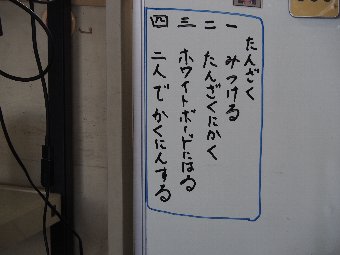 たんざく
一 みつける
二 たんざくにかく
三 ホワイトボードにはる
四 二人でかくにんする